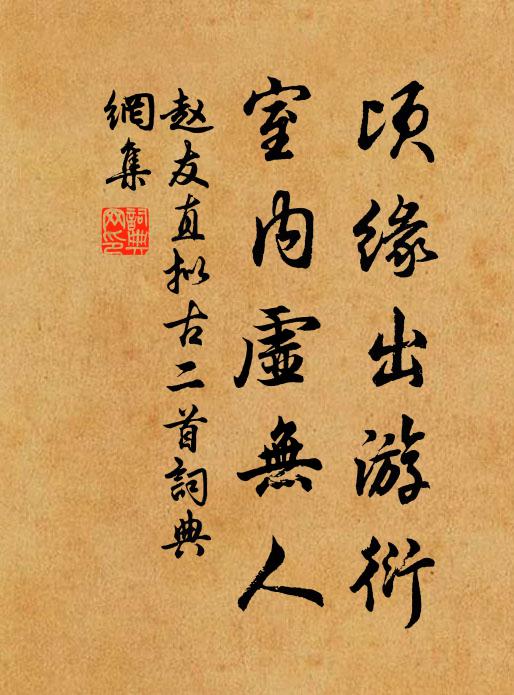 頃緣出游衍
室内虛無人
赵友直拟古二首詞典
網集
詞典
网印